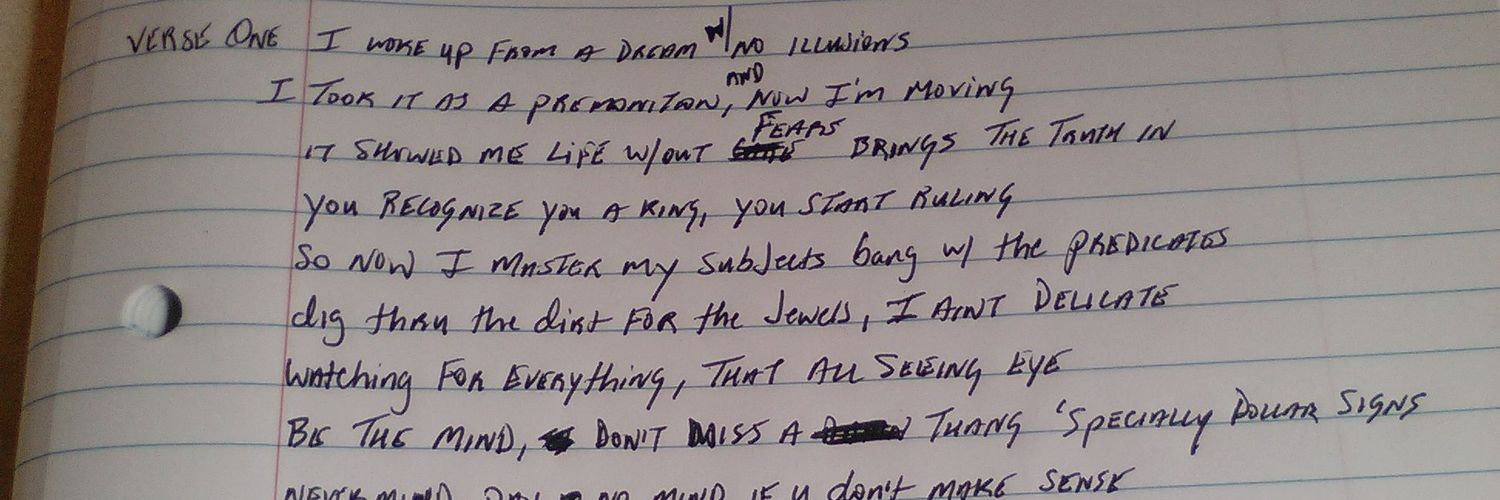 VERSE ONE I WOKE UP FROM A DREAM W/ NO ILLUSIONS
I TOOK IT AS A PREMONITON, AND NOW I'M MOVING
IT SHOWED ME LIFE W/OUT FEARS BRINGS THE TRUTH IN
YOU RECOGNIZE YOU A KING, YOU START RULING
SO NOW I MASTER MY SUBJECTS bang w/ the PREDICATES
dig thru the dirt FOR the Jewels, I AINT DELICATE
Watching FOR EVERYthing, THAT ALL SEEING EYE
BE THE MIND, DON'T MISS A THANG 'SPECIALLY DOLLAR SIGNS
NEVER MIND, PAY NO MIND IF U don't MAKE SENSE